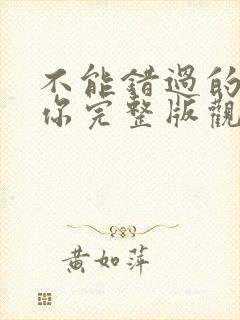 不能錯過的
你完整版觀
黃如萍